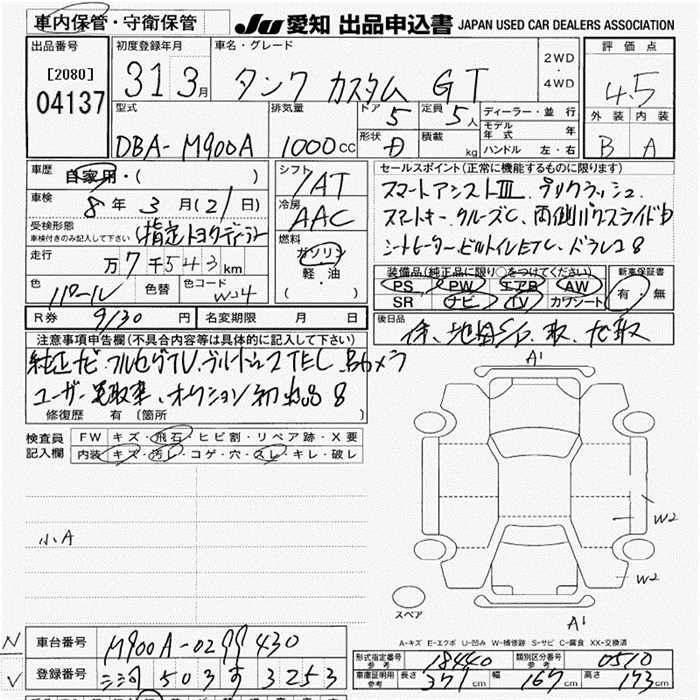 車内保管・守衛保管
JU 愛知 出品申込書 JAPAN USED CAR DEALERS ASSOCIATION
出品番号 初度登録年月 車名・グレード 2WD・4WD 評価点
[2080] 04137 31 3月 タンク カスタム GT 4.5
型式 排気量 ドア 5 定員 5人 ディーラー・並行 外装 内装
DBA-M900A 1000cc 形状 積載 kg モデル年式 年 ハンドル 左・右 B A
車歴 自家用・( ) シフト セールスポイント(正常に機能するものに限ります)
車検 8年3月(21)日 IAT スマートアシストIII
冷房 AAC スマートキー クルーズC、両側パワスライドD
受検形態 車検付きのみ記入して下さい 指定トヨタディーラー 燃料 シートヒーター ビルトインETC、ドラレコ
走行 万7千543km ガソリン 軽・油 ( )
装備品(純正品に限り○をつけてください) 新車保証書
PS PW エアB AW 有・無
SR ナビ TV カワシート
色 パール 色替 色コード W24
R券 9130円 名変期限 月 日
後日品
注意事項申告欄(不具合内容等は具体的に記入して下さい) A1
純正ナビ・フルセグTV、ブルートゥース
ユーザー買取車、オークション初出品
修復歴 有 (箇所 )
検査員記入欄 FW キズ・飛石・ヒビ割・リペア跡・X要
内装 キズ・汚レ・コゲ・穴・スレ・キレ・破レ
小A
W2
W2
スペア A1
A-キズ E-エクボ U-凹み W-補修跡 S-サビ C-腐食 XX-交換済
N 車台番号 M900A-0299430 形式指定番号 参考 18440 類別区分番号 参考 0510
V 登録番号 三河 503 す 3253 車庫証明用 参考 長さ 371cm 幅 167cm 高さ 173cm